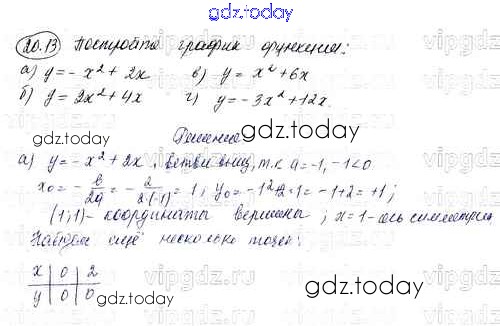 gdz.today
20.13 Постройте график функции:
а) y = - x² + 2x в) y = x² + 6x
б) y = 2x² + 4x г) y = -3x² + 12x.
gdz.today
Решение
gdz.today
а) y = -x² + 2x, ветви вниз, т.к. a = -1, -1 < 0.
x₀ = - b/2a = - 2/2·(-1) = 1; y₀ = -1² + 2·1 = -1 + 2 = +1;
(1; 1) - координата вершина; x = 1 - ось симметрии
Найдём ещё несколько точек:
x | 0 | 2
y | 0 | 0
gdz.today
gdz.today
vipgdz.ru